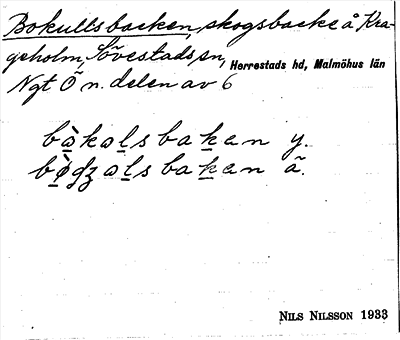 Bokullsbacken, skogsbacke å Kra-
geholm, Sövestads sn, Herrestads hd, Malmöhus län
Ngt Ö n. delen av 6
bòkəlsbakən y.
ä.
NILS NILSSON 1933